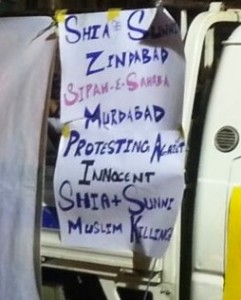 SHIA + SUNNI
ZINDABAD
SIPAH-E-SAHABA
MURDABAD
PROTESTING AGAINST
INNOCENT
SHIA + SUNNI
MUSLIM KILLINGS